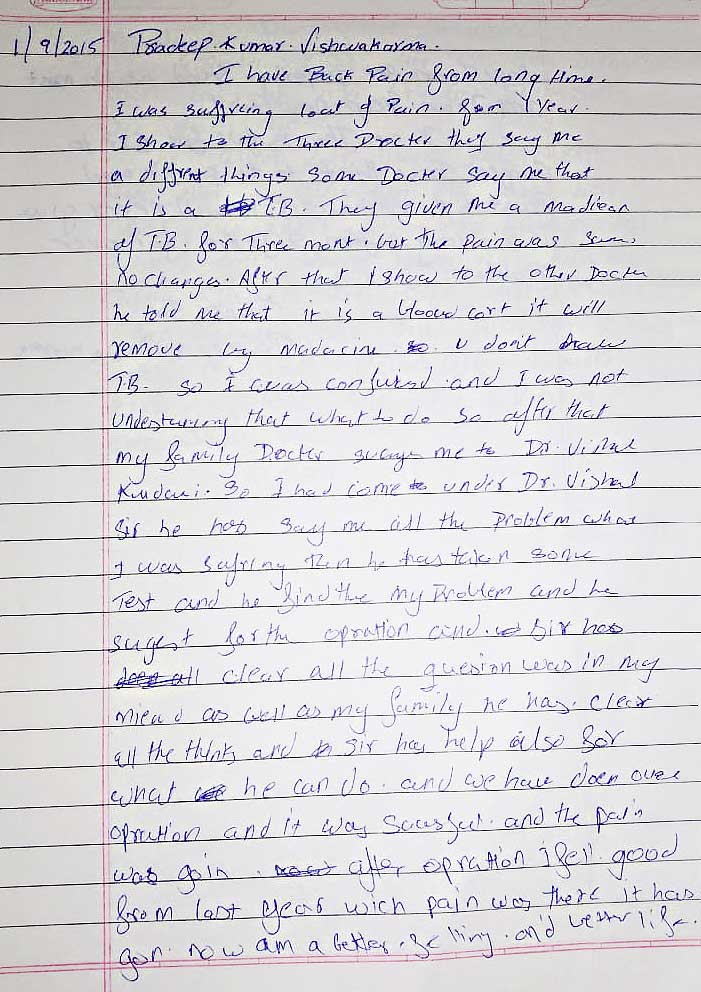 1/9/2015 Pradeep. Kumar. Vishwakarma.
I have Back Pain from long time.
I was suffreing loat of Pain. from 1 year.
I show to the Three Drocter they say me
a diffrent things some Docter say me that
it is a T.B. They given me a madicean
of T.B. for Three mont. but the pain was same
no changes. After that I show to the other Docter
he told me that it is a blood cort it will
remove by madacine. so u don't have
T.B. so I was confused. and I was not
understaning that what to do so after that
my family Docter me to Dr. Vishal
Kundani. So I had come to under Dr. Vishal
Sir he has say me all the Problem what
I was safring then he has taken some
Test and he find the my Problem and he
sugest for the opration and. Sir has
clear all the quesion was in my
miend as well as my family he has. clear
all the thinks and sir has help also for
what he can do. and we have doen over
opration and it was sucsesful. and the pain
was goin. after opration I fell. good
from last years wich pain was there it has
gon. now am a better. felling. and better life.